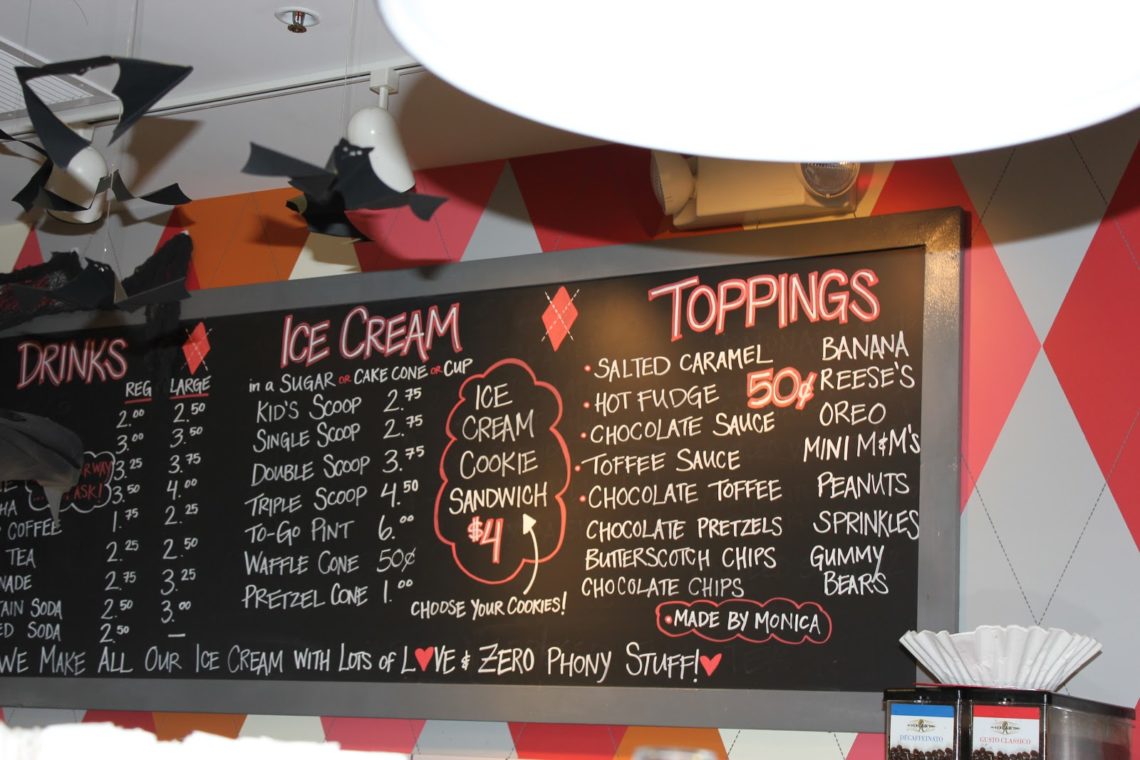 DRINKS
REG LARGE
2.00 2.50
3.00 3.50
3.25 3.75
3.50 4.00
COFFEE 1.75 2.25
TEA 2.25 2.50
2.75 3.25
SODA 2.50 3.00
SODA 2.50 —
ASK!
ICE CREAM
in a SUGAR OR CAKE CONE OR CUP
KID'S SCOOP 2.75
SINGLE SCOOP 2.75
DOUBLE SCOOP 3.75
TRIPLE SCOOP 4.50
TO-GO PINT 6.00
WAFFLE CONE 50¢
PRETZEL CONE 1.00
ICE
CREAM
COOKIE
SANDWICH
$4
CHOOSE YOUR COOKIES!
TOPPINGS
50¢
• SALTED CARAMEL
• HOT FUDGE
• CHOCOLATE SAUCE
• TOFFEE SAUCE
• CHOCOLATE TOFFEE
CHOCOLATE PRETZELS
BUTTERSCOTCH CHIPS
CHOCOLATE CHIPS
BANANA
REESE'S
OREO
MINI M&M'S
PEANUTS
SPRINKLES
GUMMY
BEARS
• MADE BY MONICA
WE MAKE ALL OUR ICE CREAM WITH LOTS OF L♥VE & ZERO PHONY STUFF!♥
DECAFFEINATO
GUSTO CLASSICO